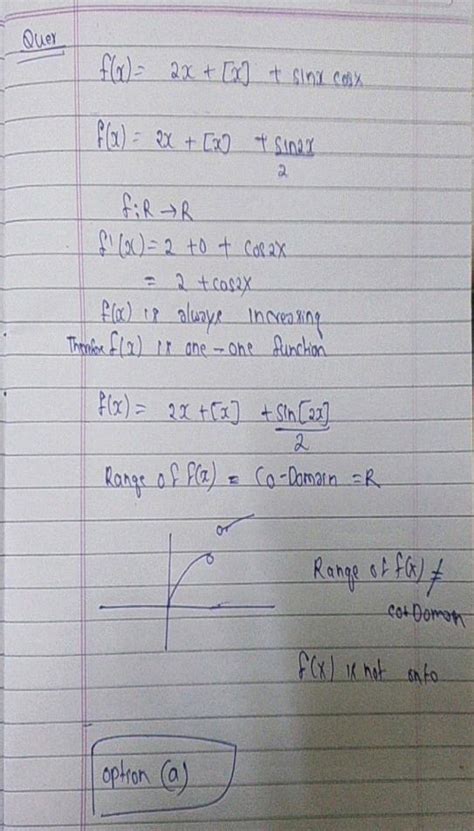 Ques
f(x) = 2x + [x] + sinx cosx
f(x) = 2x + [x] + sin2x/2
f:R → R
f'(x) = 2 + 0 + cos2x
= 2 + cos2x
f(x) is always increasing
Therefore f(x) is one-one function
f(x) = 2x + [x] + sin[2x]/2
Range of f(x) = Co-Domain = R
Range of f(x) ≠
co-Domain
f(x) is not onto
option (a)